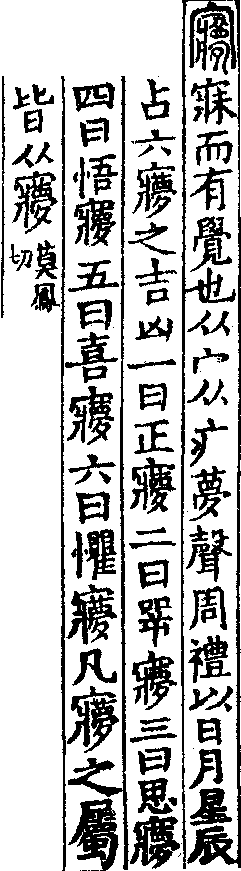 寐而有覺也从宀从疒夢聲周禮以日月星辰
占六㝱之吉凶一曰正㝱二曰㖾㝱三曰思㝱
四曰悟㝱五曰喜㝱六曰懼㝱凡㝱之屬
皆从㝱莫鳳切